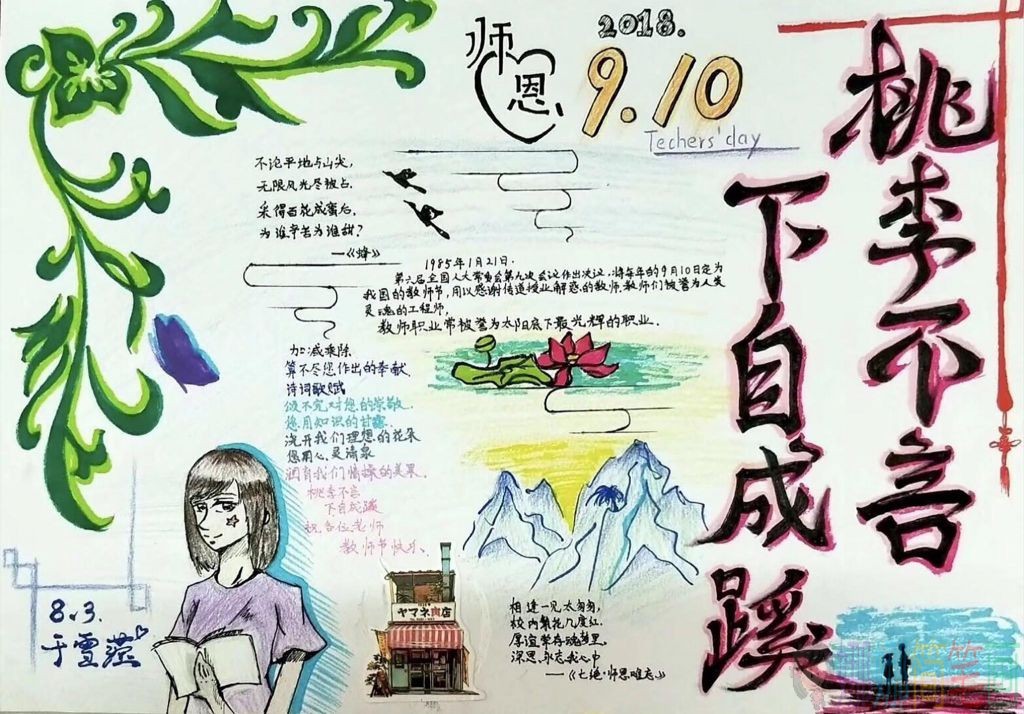 师恩
2018.
9.10
Techers'day
桃李不言
下自成蹊
不论平地与山尖,
无限风光尽被占.
采得百花成蜜后,
为谁辛苦为谁甜?
——《蜂》
1985年1月21日.
第六届全国人大常委会第九次会议作出决议.将每年的9月10日定为
我国的教师节,用以感谢传道授业解惑的教师.教师们被誉为人类
灵魂的工程师,
教师职业常被誉为太阳底下最光辉的职业.
加减乘除
算不尽您作出的奉献.
诗词歌赋
颂不完对您的崇敬.
您用知识的甘露.
浇开我们理想的花朵
您用心灵清泉
润育我们情操的美果.
桃李不言
下自成蹊
祝各位老师
教师节快乐.
相逢一见太匆匆,
校内繁花几度红.
厚谊常存魂梦里.
深恩永志我心中
——《七绝·师恩难忘》
ヤマネ肉店
8.3.
于雪燕